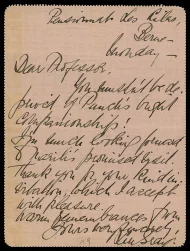 Pensionnat des Lilas,
Berne
Monday –
Dear Professor,
You mustn't be de-
prived of Punch's bright
companionship!
I'm much looking forward
to promised visit.
Thank you for your kind in-
vitation, which I accept
with pleasure.
Warm remembrances from
yours